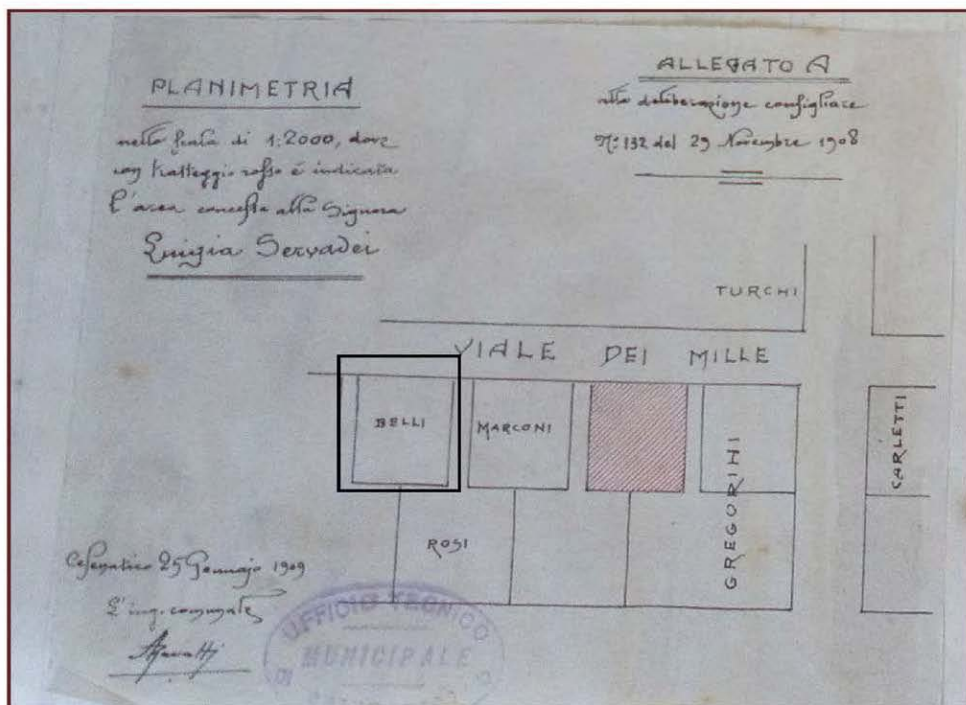 PLANIMETRIA
nella scala di 1:2000, dove
con tratteggio rosso è indicata
l'area concessa alla Signora
Luigia Servadei
ALLEGATO A
alla deliberazione consigliare
N.° 132 del 29 Novembre 1908
TURCHI
VIALE DEI MILLE
BELLI
MARCONI
GREGORINI
CARLETTI
ROSI
Cesenatico 25 Gennajo 1909
L'ing. comunale
UFFICIO TECNICO
MUNICIPALE